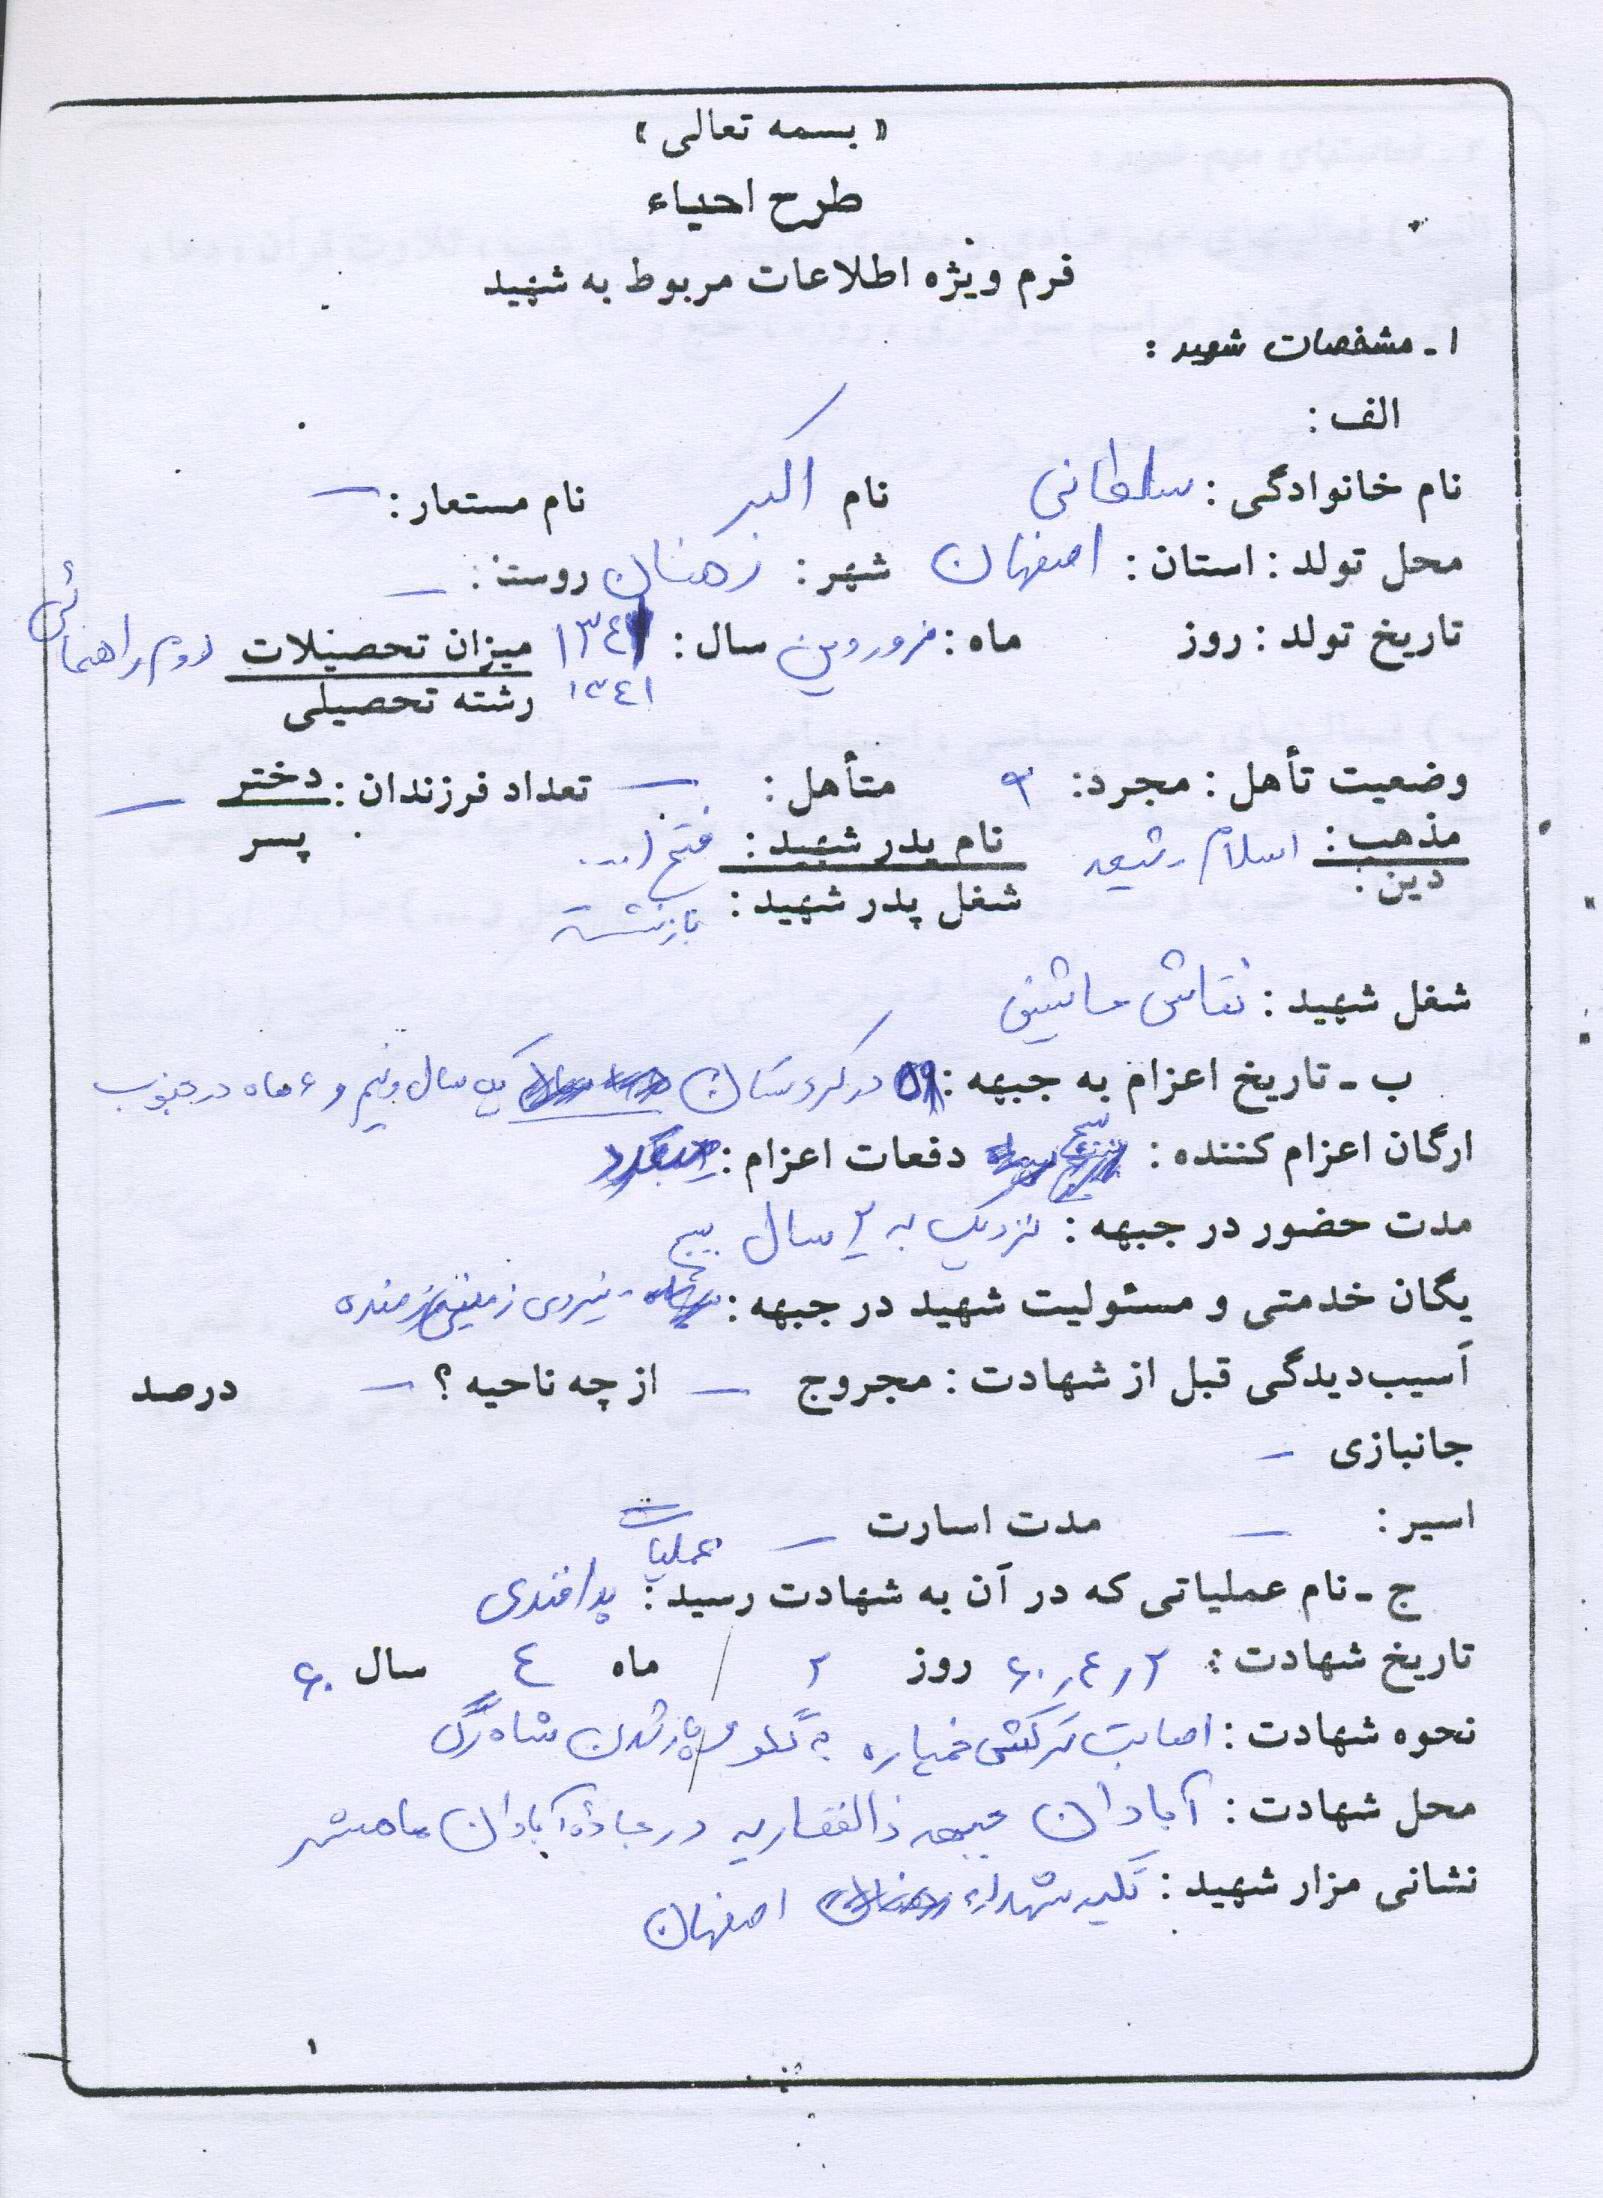 « بسمه تعالی »
طرح احیاء
فرم ویژه اطلاعات مربوط به شهید
۱ ـ مشخصات شهید :
الف :
نام خانوادگی : سلطانی نام اکبر نام مستعار : —
محل تولد : استان : اصفهان شهر : رهنان روستا : —
تاریخ تولد : روز ماه : فروردین سال : ۱۳٤۱ میزان تحصیلات دوم راهنمائی
۱۳٤۱ رشته تحصیلی
وضعیت تأهل : مجرد : متأهل : — تعداد فرزندان : دختر —
پسر
مذهب : اسلام شیعه نام پدر شهید : فتح ا...
دین : شغل پدر شهید : بازنشسته
شغل شهید : نقاش ماشین
ب ـ تاریخ اعزام به جبهه : ۵۹ در کردستان یک سال و نیم و ۶ ماه در جنوب
ارگان اعزام کننده : بسیج دفعات اعزام :
مدت حضور در جبهه : نزدیک به ۲ سال
یگان خدمتی و مسئولیت شهید در جبهه : بسیج - نیروی زمینی رزمنده
آسیب‌دیدگی قبل از شهادت : مجروح — از چه ناحیه ؟ — درصد
جانبازی —
اسیر : — مدت اسارت —
ج ـ نام عملیاتی که در آن به شهادت رسید : عملیات پدافندی
تاریخ شهادت : ۲ر٤ر۶۰ روز ۲ ماه ٤ سال ۶۰
نحوه شهادت : اصابت ترکش خمپاره به گلو و پاره شدن شاه رگ
محل شهادت : آبادان جبهه ذالفقاریه در جاده آبادان ماهشهر
نشانی مزار شهید : تکیه شهداء اصفهان
۱